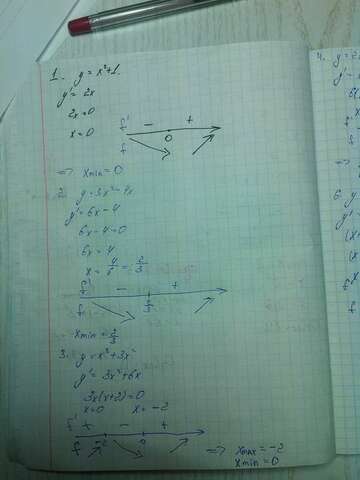 1. y = x²+1.
y' = 2x
2x=0
x=0
f' - +
0
f
=> xmin = 0
2. y=3x²-4x
y'=6x-4
6x-4=0
6x=4
x= 4/6 = 2/3
f' - +
2/3
f
xmin = 2/3
3. y=x³+3x²
y'=3x²+6x
3x(x+2)=0
x=0 x=-2
f' + - +
f -2 0
=> xmax = -2
xmin = 0
4.
6. y